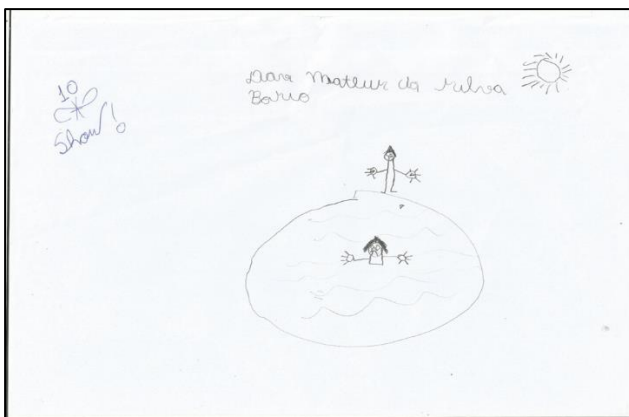 10
Show!
Mateus da silva
Bario